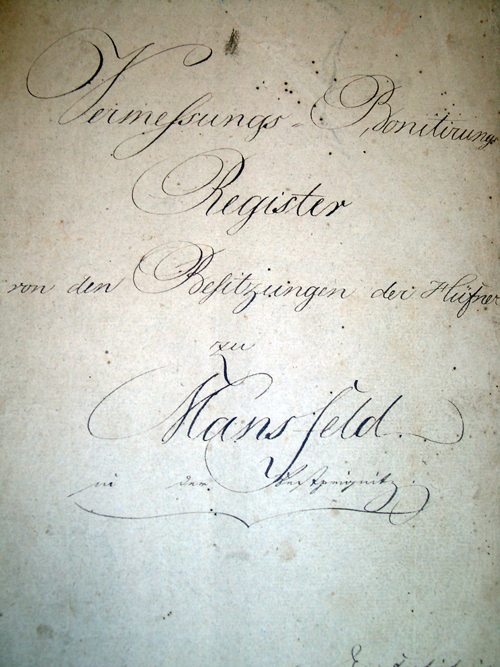 Vermessungs = Bonitirungs
Register
von den Besitzungen der Hüfner
zu
Mansfeld
in der Westpreignitz